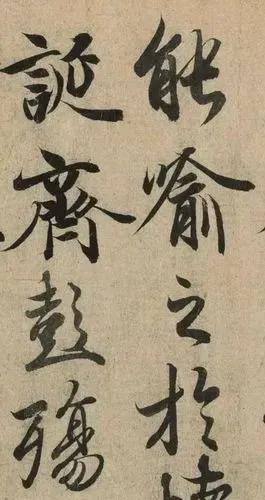 能喻之於
誕齊彭殤